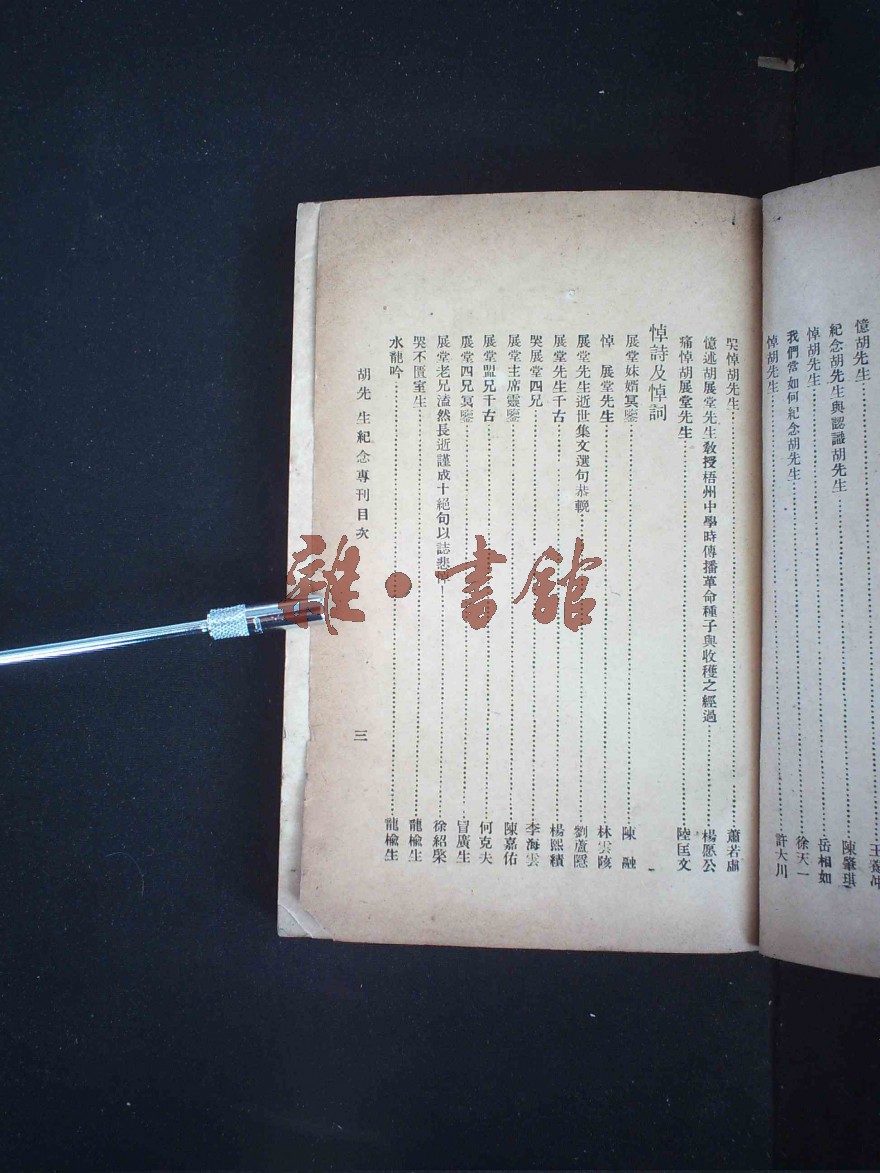 憶胡先生
紀念胡先生與認識胡先生 陳肇琪
悼胡先生 岳相如
我們當如何紀念胡先生 徐天一
悼胡先生 許大川
哭悼胡先生 蕭若虛
憶述胡展堂先生教授梧州中學時傳播革命種子與收穫之經過 楊愿公
痛悼胡展堂先生 陸匡文
悼詩及悼詞
展堂妹婿冥鑒 陳融
悼 展堂先生 林雲陔
展堂先生近世集文選句恭輓 劉蘆隱
展堂先生千古 楊熙績
哭展堂四兄 李海雲
展堂主席靈鑒 陳嘉佑
展堂盟兄千古 何克夫
展堂四兄冥鑒 冒廣生
展堂老兄溘然長逝謹成十絕句以誌悲 徐紹棨
哭不匱室主 龍楡生
水龍吟 龍楡生
胡先生紀念專刊目次
三
雜·書館